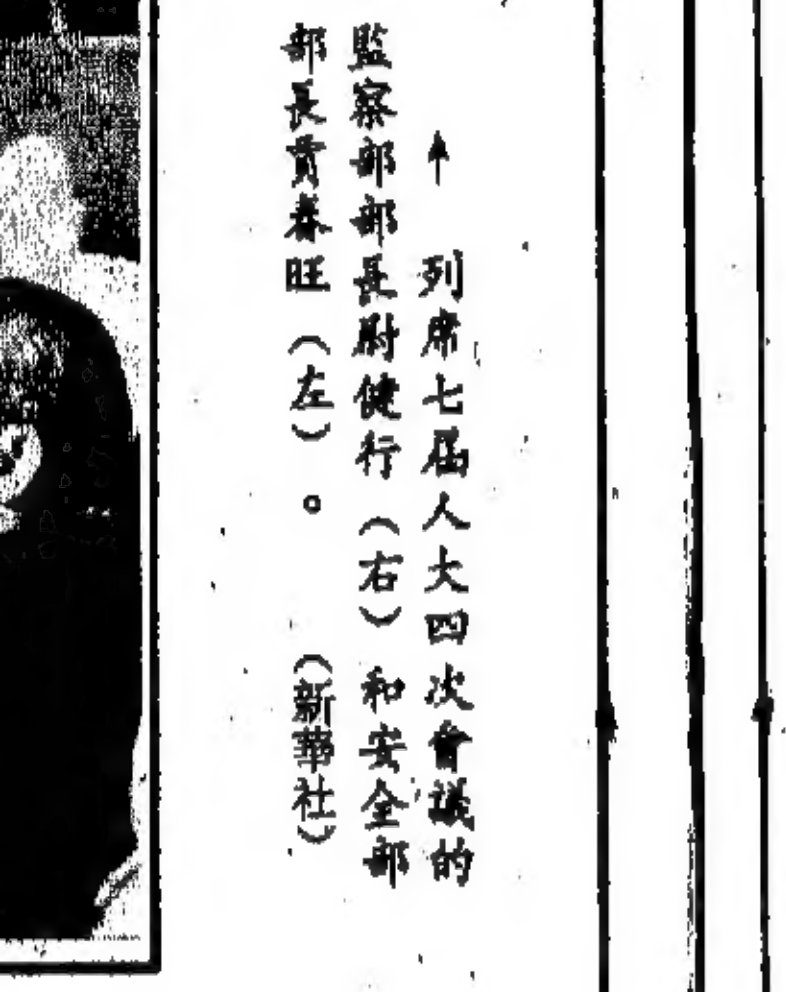 ↑ 列席七届人大四次會議的
監察部部長尉健行（右）和安全部
部長賈春旺（左）。（新華社）